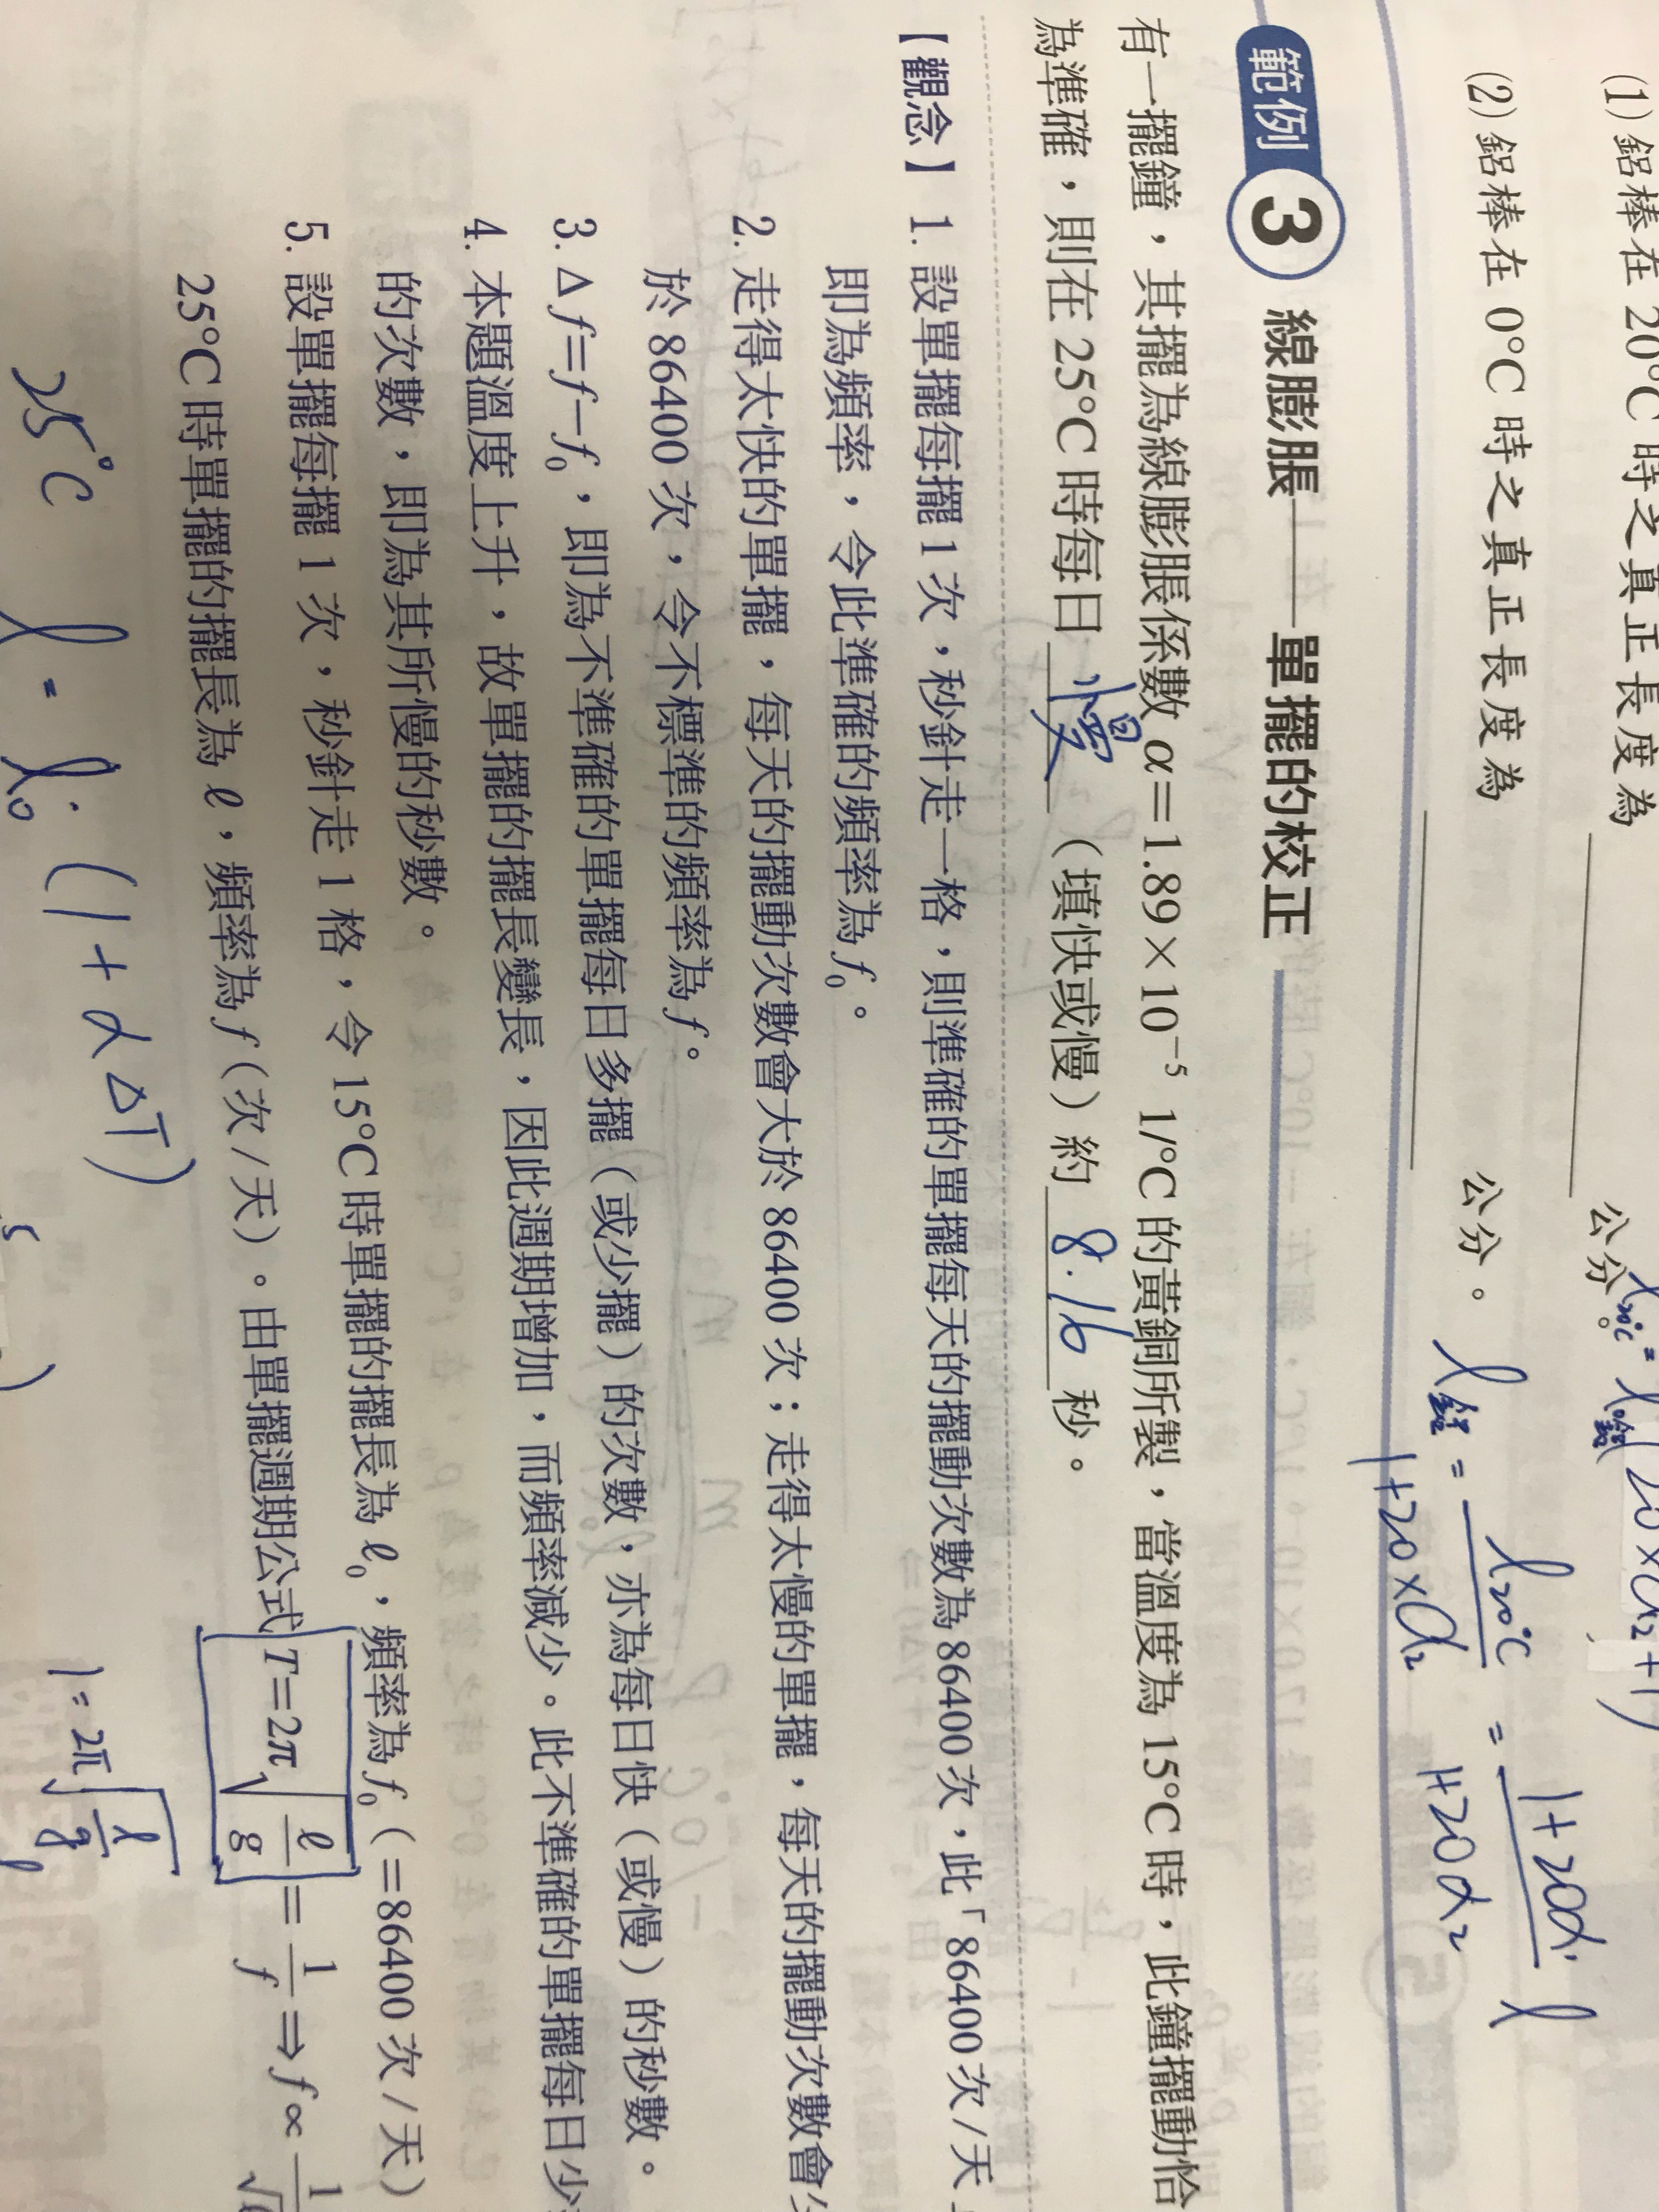 (1) 鋁棒在 20°C 時之真正長度為 公分。
(2) 鋁棒在 0°C 時之真正長度為 公分。
l鋁 = l20°C / 1+20×α₂ = 1+20α₁ / 1+20α₂ l
範例 3 線膨脹——單擺的校正
有一擺鐘,其擺為線膨脹係數 α=1.89×10⁻⁵ 1/°C 的黃銅所製,當溫度為 15°C 時,此鐘擺動恰
為準確,則在 25°C 時每日 慢 (填快或慢)約 8.16 秒。
【觀念】1. 設單擺每擺 1 次,秒針走一格,則準確的單擺每天的擺動次數為 86400 次,此「86400 次/天
即為頻率,令此準確的頻率為 f₀。
2. 走得太快的單擺,每天的擺動次數會大於 86400 次;走得太慢的單擺,每天的擺動次數會
於 86400 次,令不標準的頻率為 f。
3. Δf=f-f₀,即為不準確的單擺每日多擺(或少擺)的次數,亦為每日快(或慢)的秒數。
4. 本題溫度上升,故單擺的擺長變長,因此週期增加,而頻率減少。此不準確的單擺每日少
的次數,即為其所慢的秒數。
5. 設單擺每擺 1 次,秒針走 1 格,令 15°C 時單擺的擺長為 ℓ₀,頻率為 f₀(=86400 次/天)
25°C 時單擺的擺長為 ℓ,頻率為 f(次/天)。由單擺週期公式 T=2π√(ℓ/g)=1/f⇒f∝1/√
25°C l = l₀ · (1+αΔT) 1=2π√(l/g)